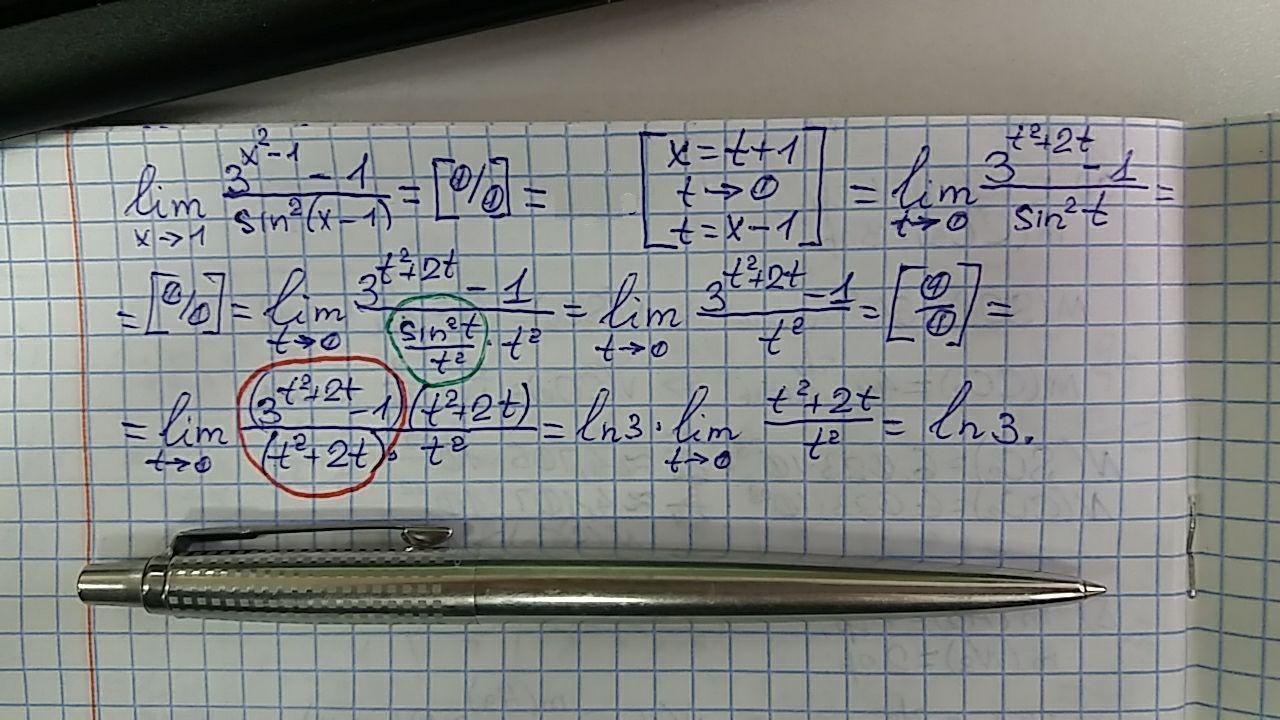 lim x→1 (3^(x²-1) - 1)/(sin²(x-1)) = [0/0] = [x = t+1 t→0 t = x-1] = lim t→0 (3^(t²+2t) - 1)/(sin²t) =
= [0/0] = lim t→0 (3^(t²+2t) - 1)/((sin²t/t²)·t²) = lim t→0 (3^(t²+2t) - 1)/(t²) = [0/0] =
= lim t→0 ((3^(t²+2t) - 1)(t²+2t))/((t²+2t)·t²) = ln3 · lim t→0 (t²+2t)/(t²) = ln3.